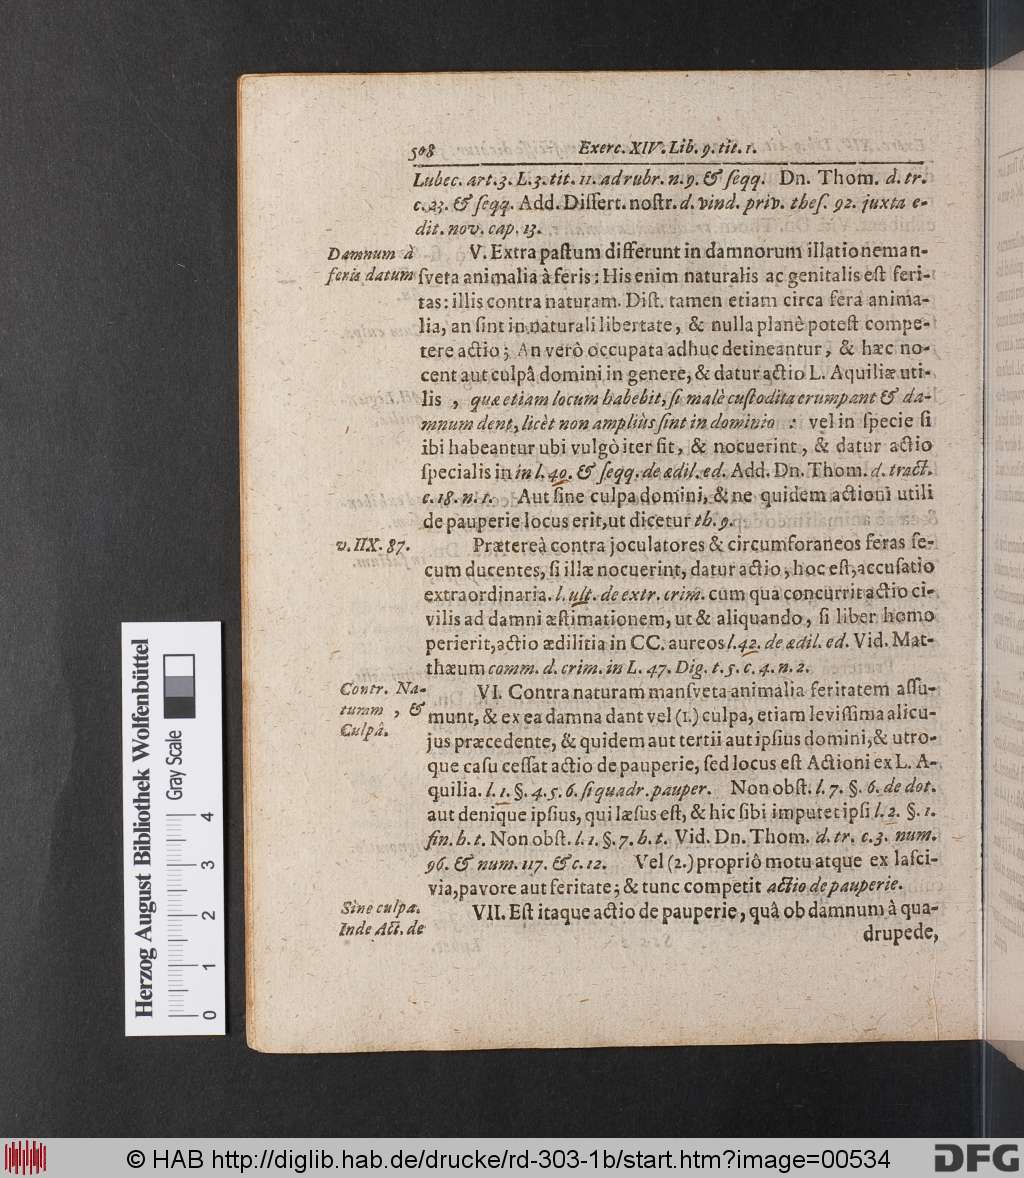 508 Exerc. XIV. Lib. 9. tit. 1.
Lubec. art. 3. L. 3. tit. 11. ad rubr. n. 9. & ſeqq. Dn. Thom. d. tr.
c. 23. & ſeqq. Add. Diſſert. noſtr. d. vind. priv. theſ. 92. juxta e-
dit. nov. cap. 13.
Damnum à
feris datum
V. Extra paſtum differunt in damnorum illatione man-
ſveta animalia à feris: His enim naturalis ac genitalis eſt feri-
tas: illis contra naturam. Diſt. tamen etiam circa fera anima-
lia, an ſint in naturali libertate, & nulla planè poteſt compe-
tere actio; An verò occupata adhuc detineantur, & hæc no-
cent aut culpâ domini in genere, & datur actio L. Aquiliæ uti-
lis, quæ etiam locum habebit, ſi malè cuſtodita erumpant & da-
mnum dent, licèt non ampliùs ſint in dominio : vel in ſpecie ſi
ibi habeantur ubi vulgò iter fit, & nocuerint, & datur actio
ſpecialis in in l. 40. & ſeqq. de ædil. ed. Add. Dn. Thom. d. tract.
c. 18. n. 1. Aut ſine culpa domini, & ne quidem actioni utili
de pauperie locus erit, ut dicetur th. 9.
v. IIX. 87.
Prætereà contra joculatores & circumforaneos feras ſe-
cum ducentes, ſi illæ nocuerint, datur actio, hoc eſt, accuſatio
extraordinaria. l. ult. de extr. crim. cum qua concurrit actio ci-
vilis ad damni æſtimationem, ut & aliquando, ſi liber homo
perierit, actio ædilitia in CC. aureos l. 42. de ædil. ed. Vid. Mat-
thæum comm. d. crim. in L. 47. Dig. t. 5. c. 4. n. 2.
Contr. Na-
turam, &
Culpâ.
VI. Contra naturam manſveta animalia feritatem aſſu-
munt, & ex ea damna dant vel (1.) culpa, etiam leviſſima alicu-
jus præcedente, & quidem aut tertii aut ipſius domini, & utro-
que caſu ceſſat actio de pauperie, ſed locus eſt Actioni ex L. A-
quilia. l. 1. §. 4. 5. 6. ſi quadr. pauper. Non obſt. l. 7. §. 6. de dot.
aut denique ipſius, qui læſus eſt, & hic ſibi imputet ipſi l. 2. §. 1.
fin. h. t. Non obſt. l. 1. §. 7. h. t. Vid. Dn. Thom. d. tr. c. 3. num.
96. & num. 117. & c. 12. Vel (2.) propriô motu atque ex laſci-
via, pavore aut feritate; & tunc competit actio de pauperie.
Sine culpa.
Inde Act. de
VII. Eſt itaque actio de pauperie, quâ ob damnum à qua-
drupede,
Herzog August Bibliothek Wolfenbüttel
Gray Scale
0 1 2 3 4
© HAB http://diglib.hab.de/drucke/rd-303-1b/start.htm?image=00534
DFG